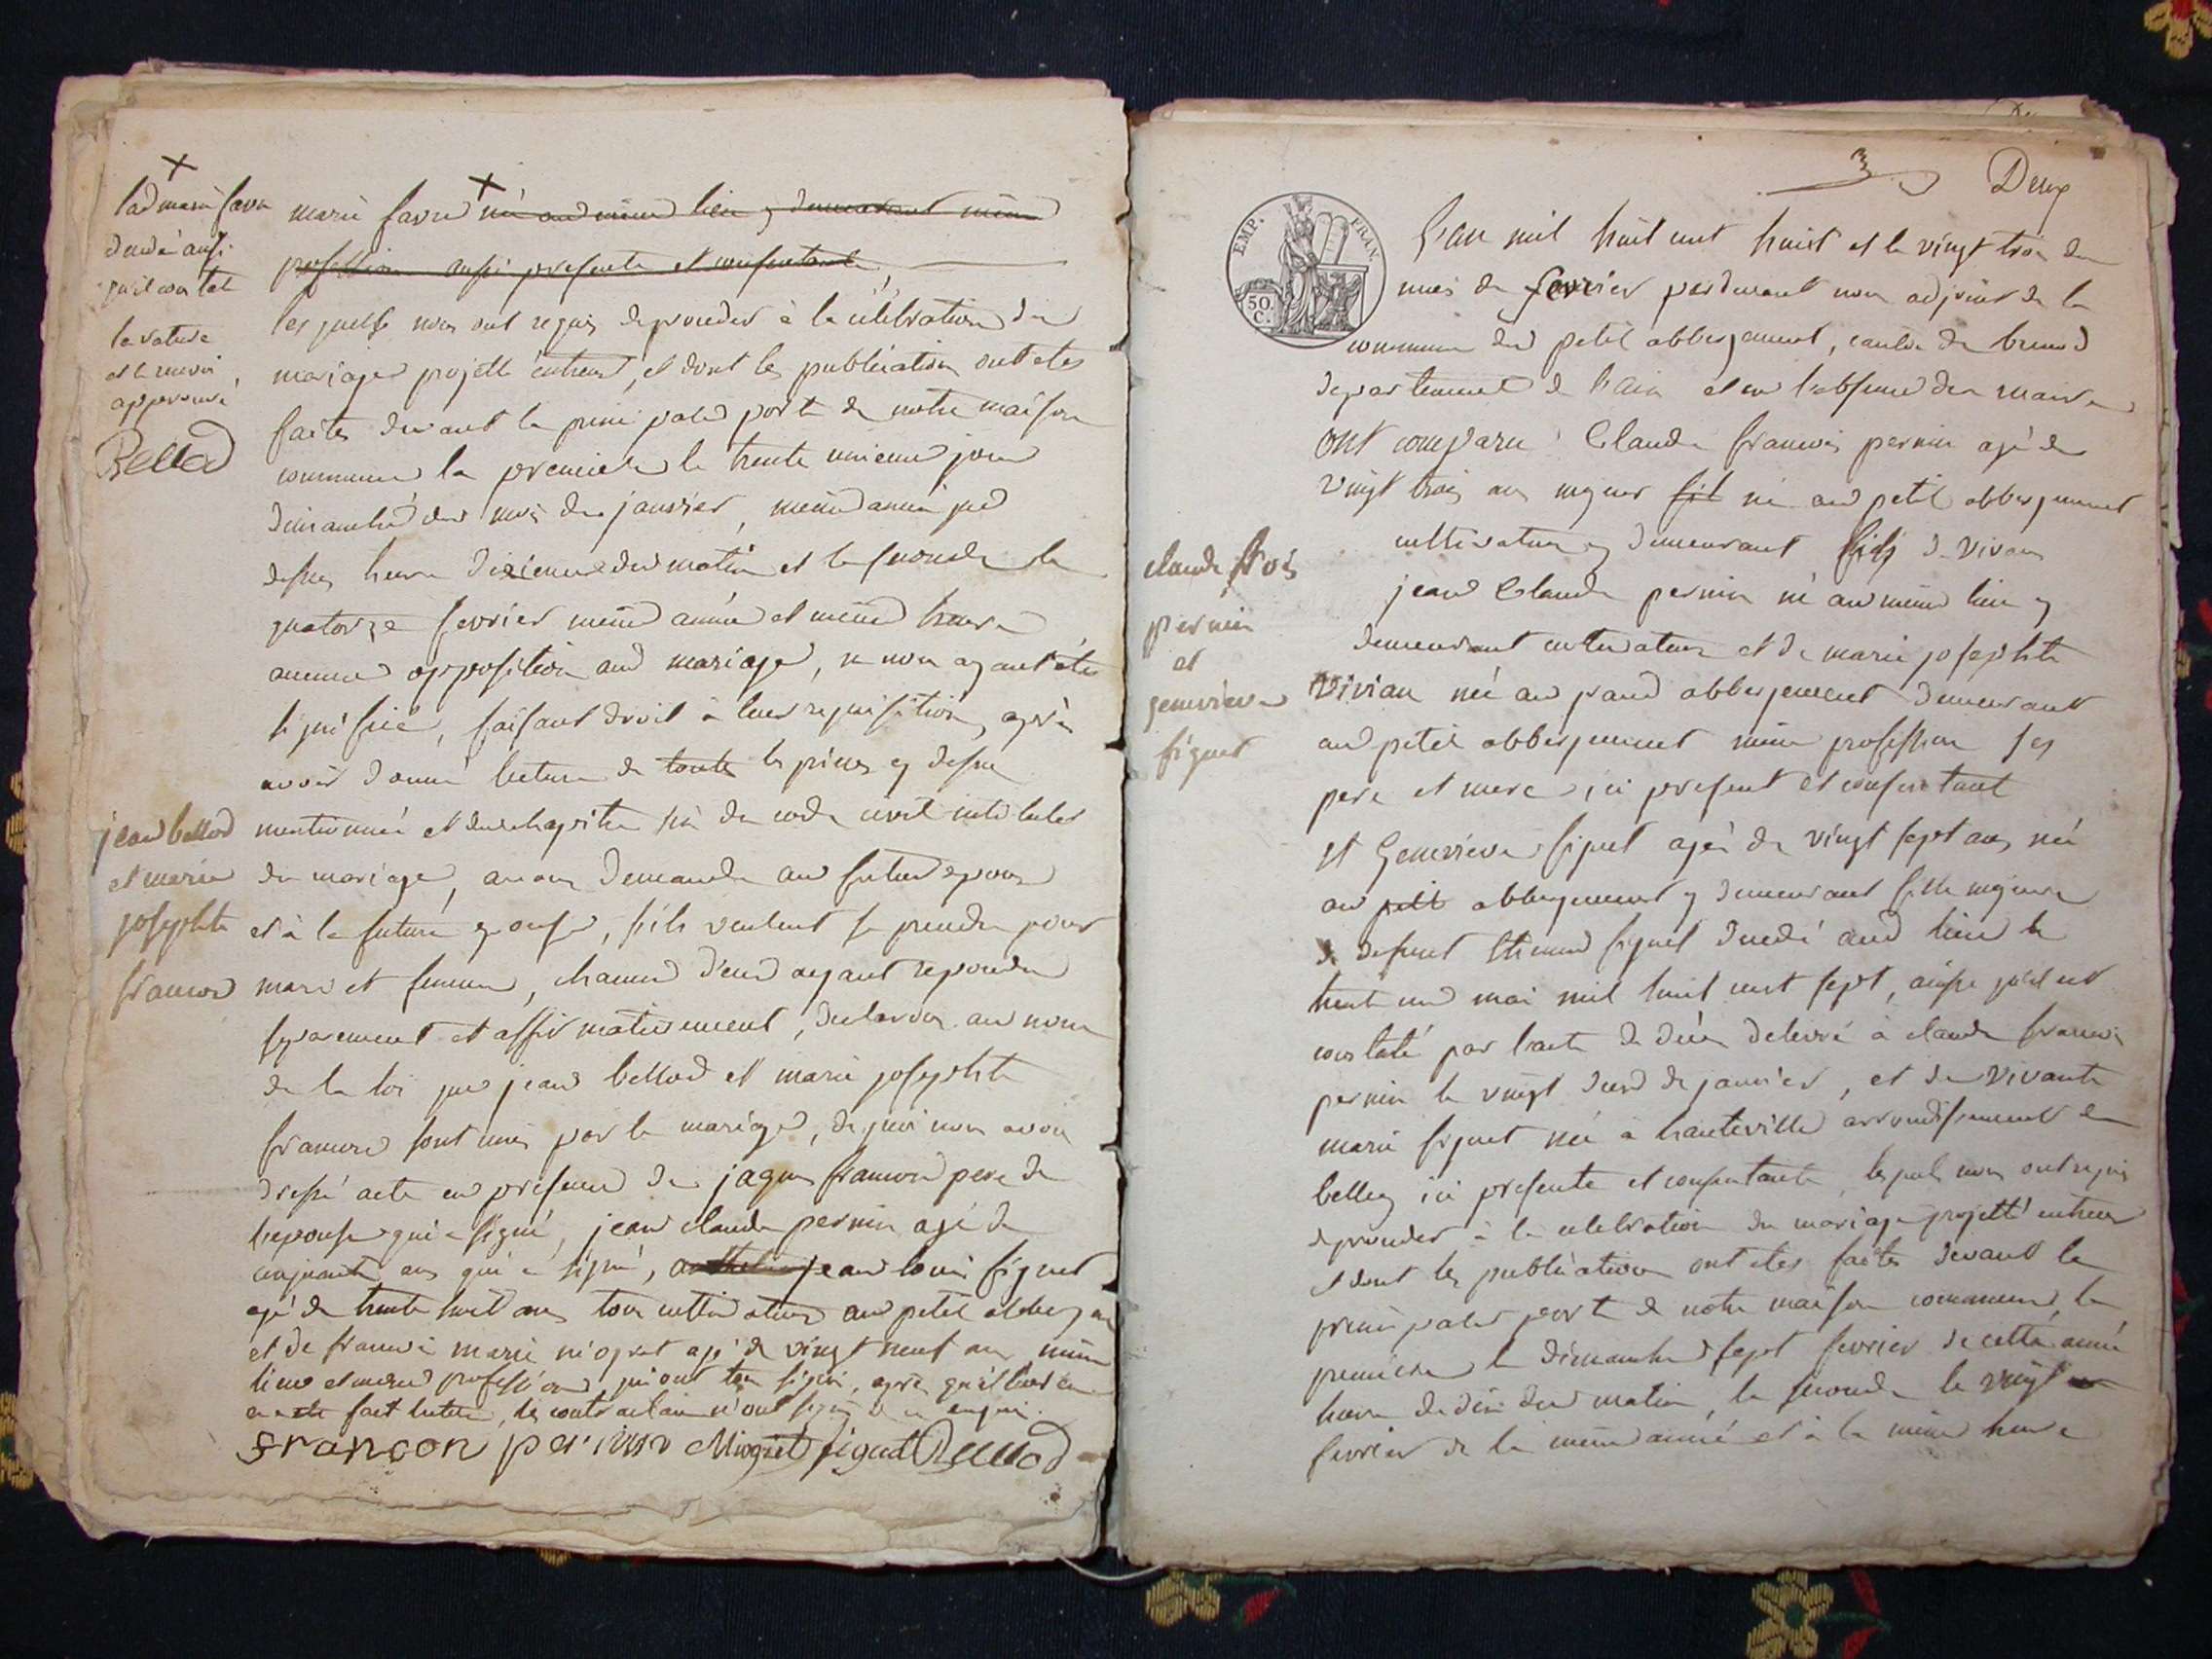 lad marie favre
decedé ainsi
qu'il constate
la rature
et le renvoi
approuvé
Bellod
marie favre né aud même lieu y demeurant même
profession aussi presente et consentante,
lesquels nous ont requis de proceder à la célébration du
mariage projetté entreux, et dont les publication ont etes
faites devant la principale porte de notre maison
commune la premiere le trente unieme jour
dimanche du mois de janvier, même année que
dessus heure dixieme du matin et la seconde le
quatorze fevrier même année et même heure
aucune opposition aud mariage, ne nous ayant étés
signifiée, faisant droit à leur requisition, après
avoir donné lecture de toutes les pieces cy dessus
jean bellod
et marie
josephte
francon
mentionnée et du chapitre six du code civil intitulés
du mariage, avons demandé au futur epoux
et à la future epouse, s'ils veulent se prendre pour
mari et femme, chacun d'eux ayant repondu
separement et affirmativement, declarons au nom
de la loi que jean bellod et marie josephte
francon sont unis par le mariage, de quoi nous avons
dressé acte en presence de jaques francon pere de
l'epouse qui a signé, jean claude pernin agé de
cinquante ans qui a signé, jean louis figuet
agé de trente huit ans tous cultivateurs au petit abberg
et de francois marie niogret agé de vingt neuf ans même
lieu et meme profession qui ont tous signés, après qu'il leur en
a ete fait lecture, les contractans n'ont signé
françon pernin Niogret figuet Bellod
3 Deux
EMP. FRAN
50 C.
L'an mil huit cent huit et le vingt trois du
mois de fevrier pardevant nous adjoint de la
commune du petit abbergement, canton de brenod
departement de l'ain et en l'absence du maire
ont comparu Claude francois pernin agé de
vingt trois ans majeur fil né au petit abbergement
cultivateur y demeurant fils de vivans
claude frois
pernin
et
genevieve
figuet
jean Claude pernin né au même lieu y
demeurant cultivateur et de marie josephte
Vivian née au grand abbergement demeurant
au petit abbergement même profession ses
pere et mere ici present et consentant
et Genevieve figuet agée de vingt sept ans née
au petit abbergement y demeurant fille majeure
de defunt Etienne figuet decedé aud lieu le
trente un mai mil huit cent sept, ainsi qu'il est
constaté par l'acte de décès delivré à claude francois
pernin le vingt deux de janvier, et de vivante
marie figuet née à hauteville arrondissement de
belley ici presente et consentante, lesquels nous ont requis
de proceder à la celebration du mariage projetté entreux
et dont les publication ont etes faites devant la
principale porte de notre maison commune, la
premiere le dimanche sept fevrier de cette année
heure de dix du matin, la seconde le vingt un
fevrier de la meme année et à la même heure